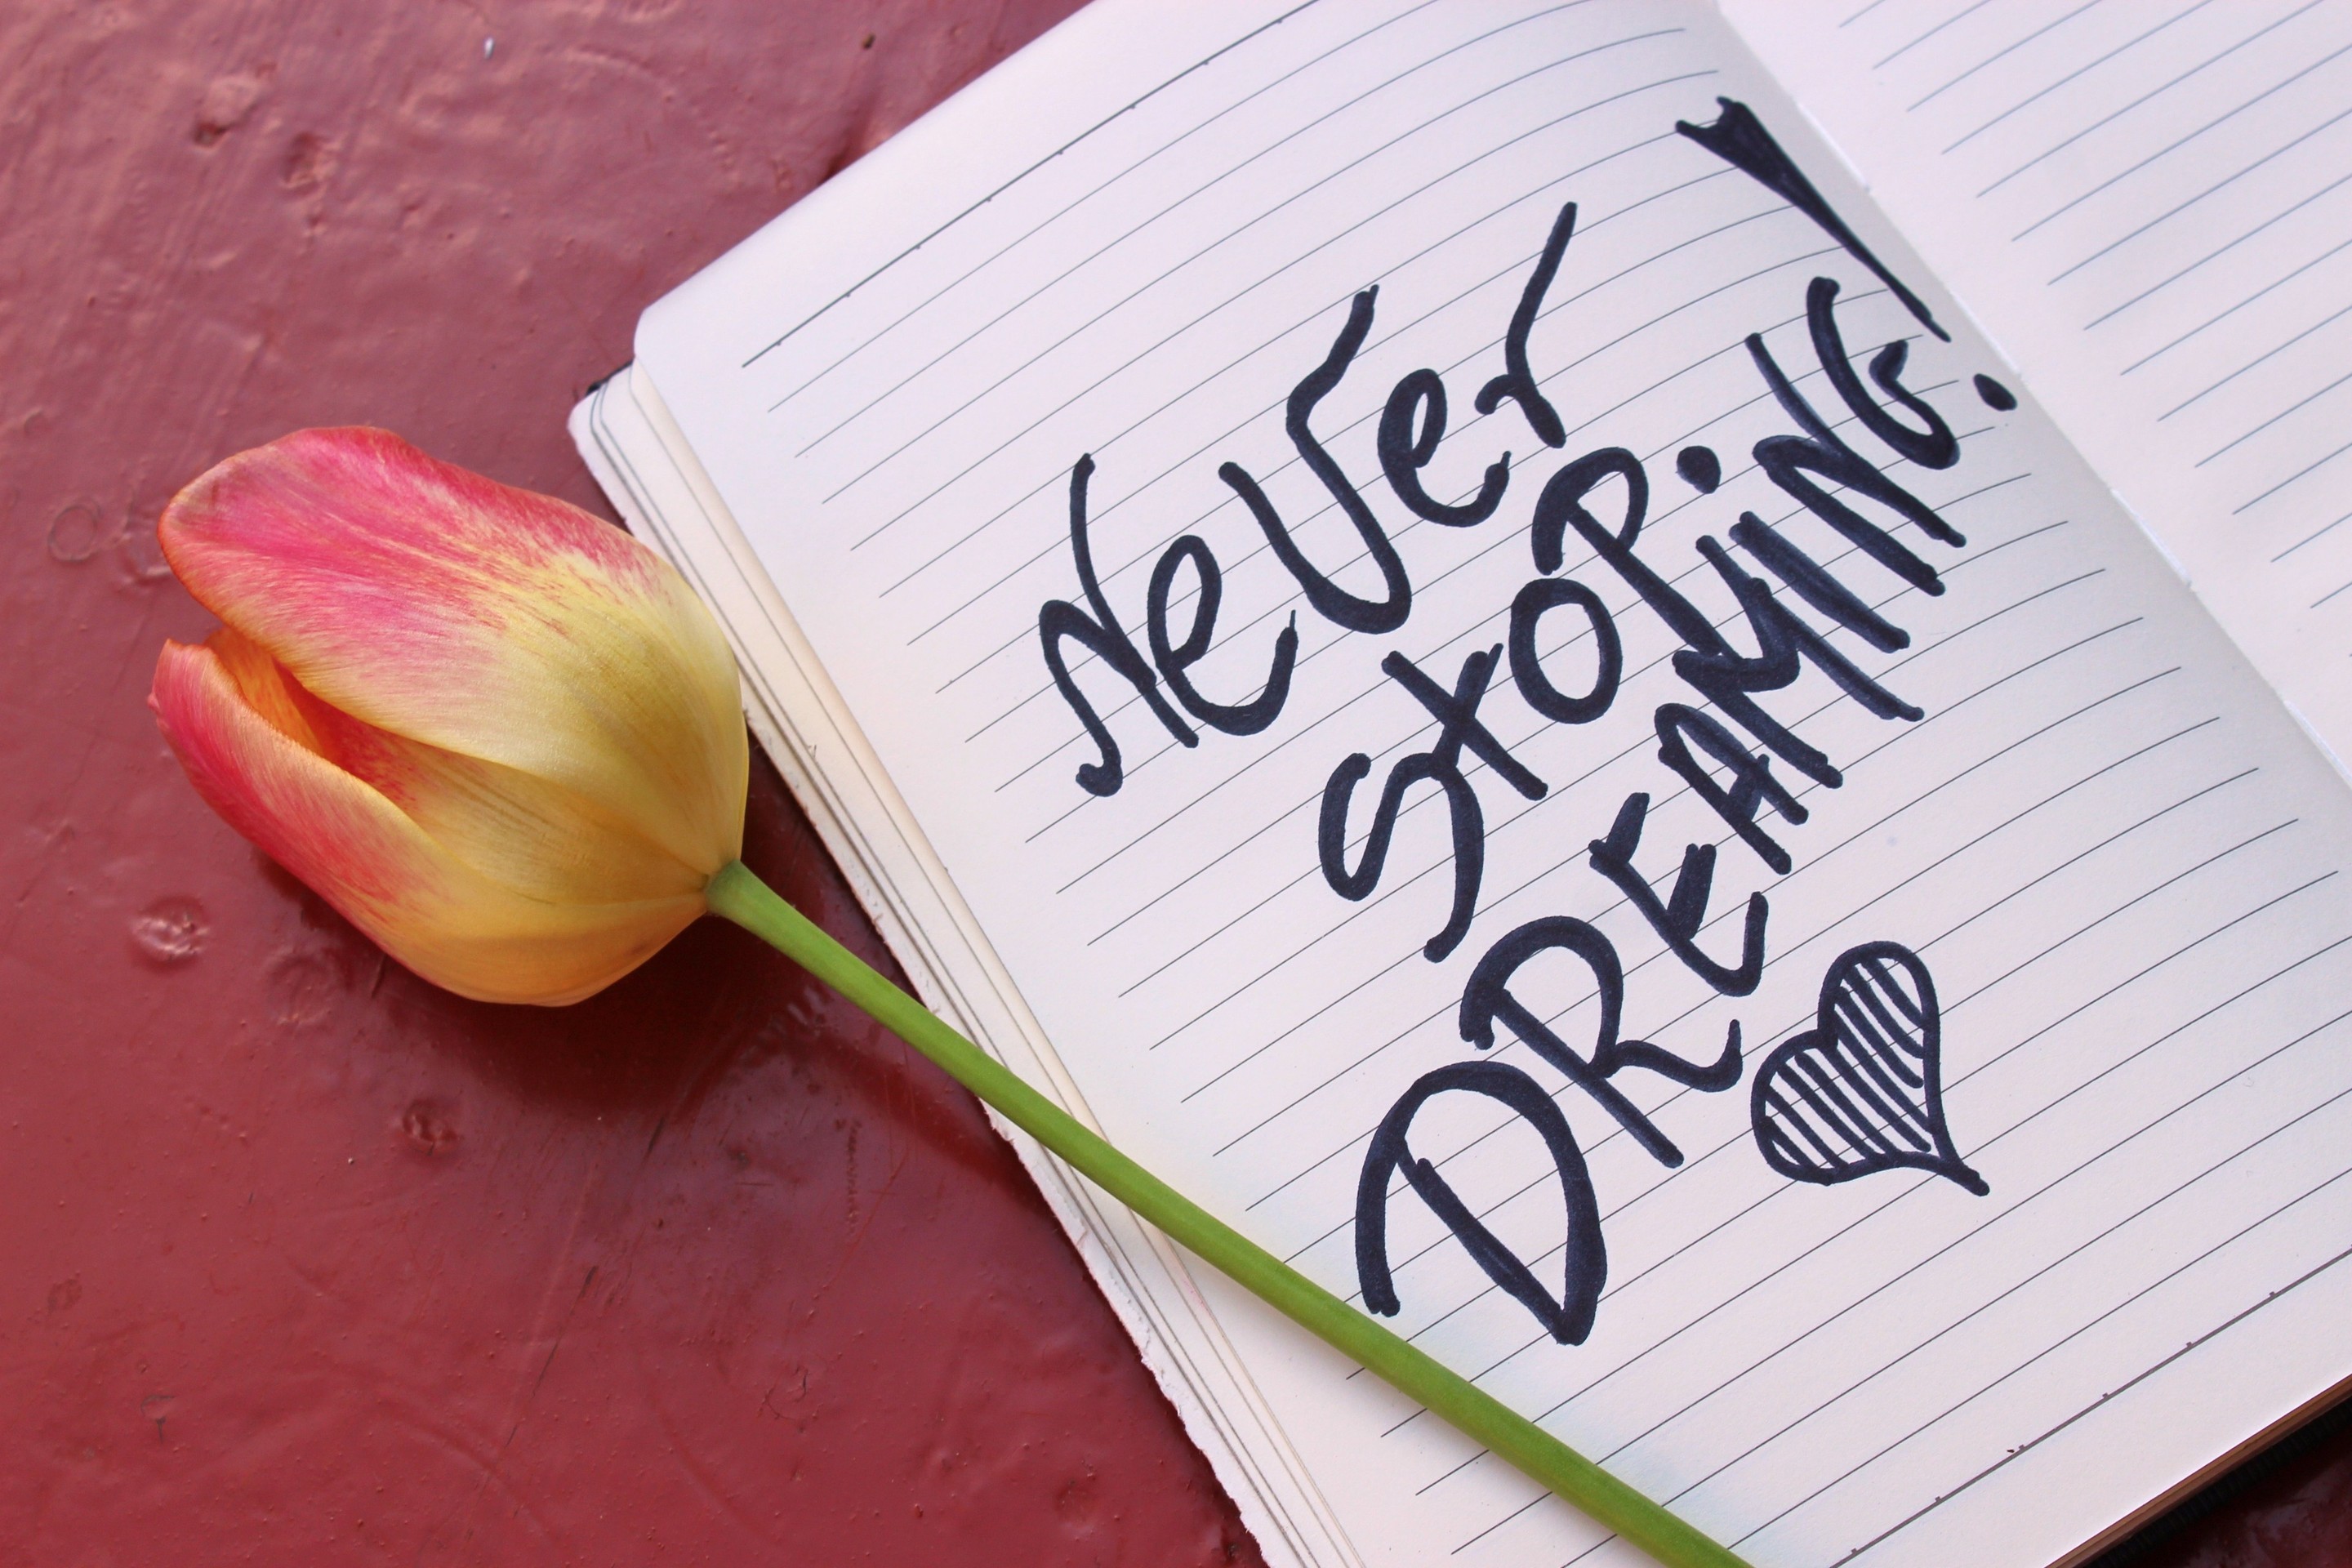 NeVer
StoP
DREAMiNG!